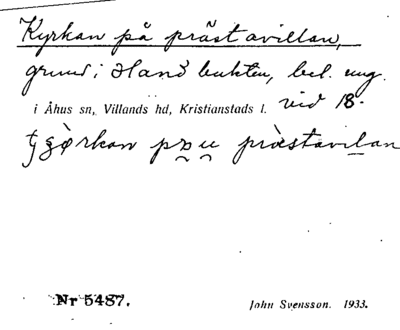 Kyrkan på prästavillan,
grund i Hanöbukten, bel. ung.
i Åhus sn, Villands hd, Kristianstads l. vid 18.
prästavilan
Nr 5487.
John Svensson. 1933.